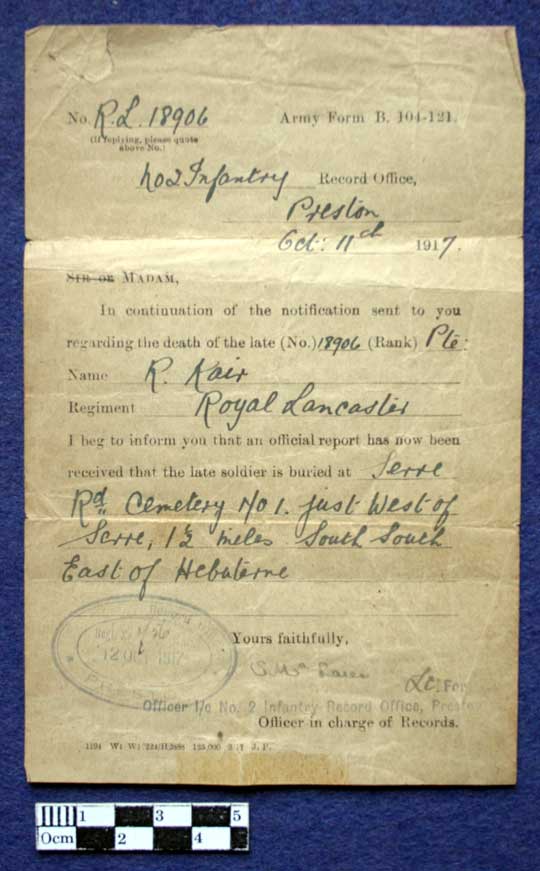 No. R.L. 18906 Army Form B. 104-121.
(If replying, please quote
above No.)
No 2 Infantry Record Office,
Preston
Oct: 11th 1917.
SIR OR MADAM,
In continuation of the notification sent to you
regarding the death of the late (No.) 18906 (Rank) Pte:
Name R. Kair
Regiment Royal Lancaster
I beg to inform you that an official report has now been
received that the late soldier is buried at Serre
Rd Cemetery No 1. just West of
Serre, 1½ miles South South
East of Hebuterne
12 OCT 1917
Yours faithfully,
Lt: For
Officer i/c No. 2 Infantry Record Office, Preston
Officer in charge of Records.
1194 Wt W 224/H2888 125,000 J. P.
0cm 1 2 3 4 5